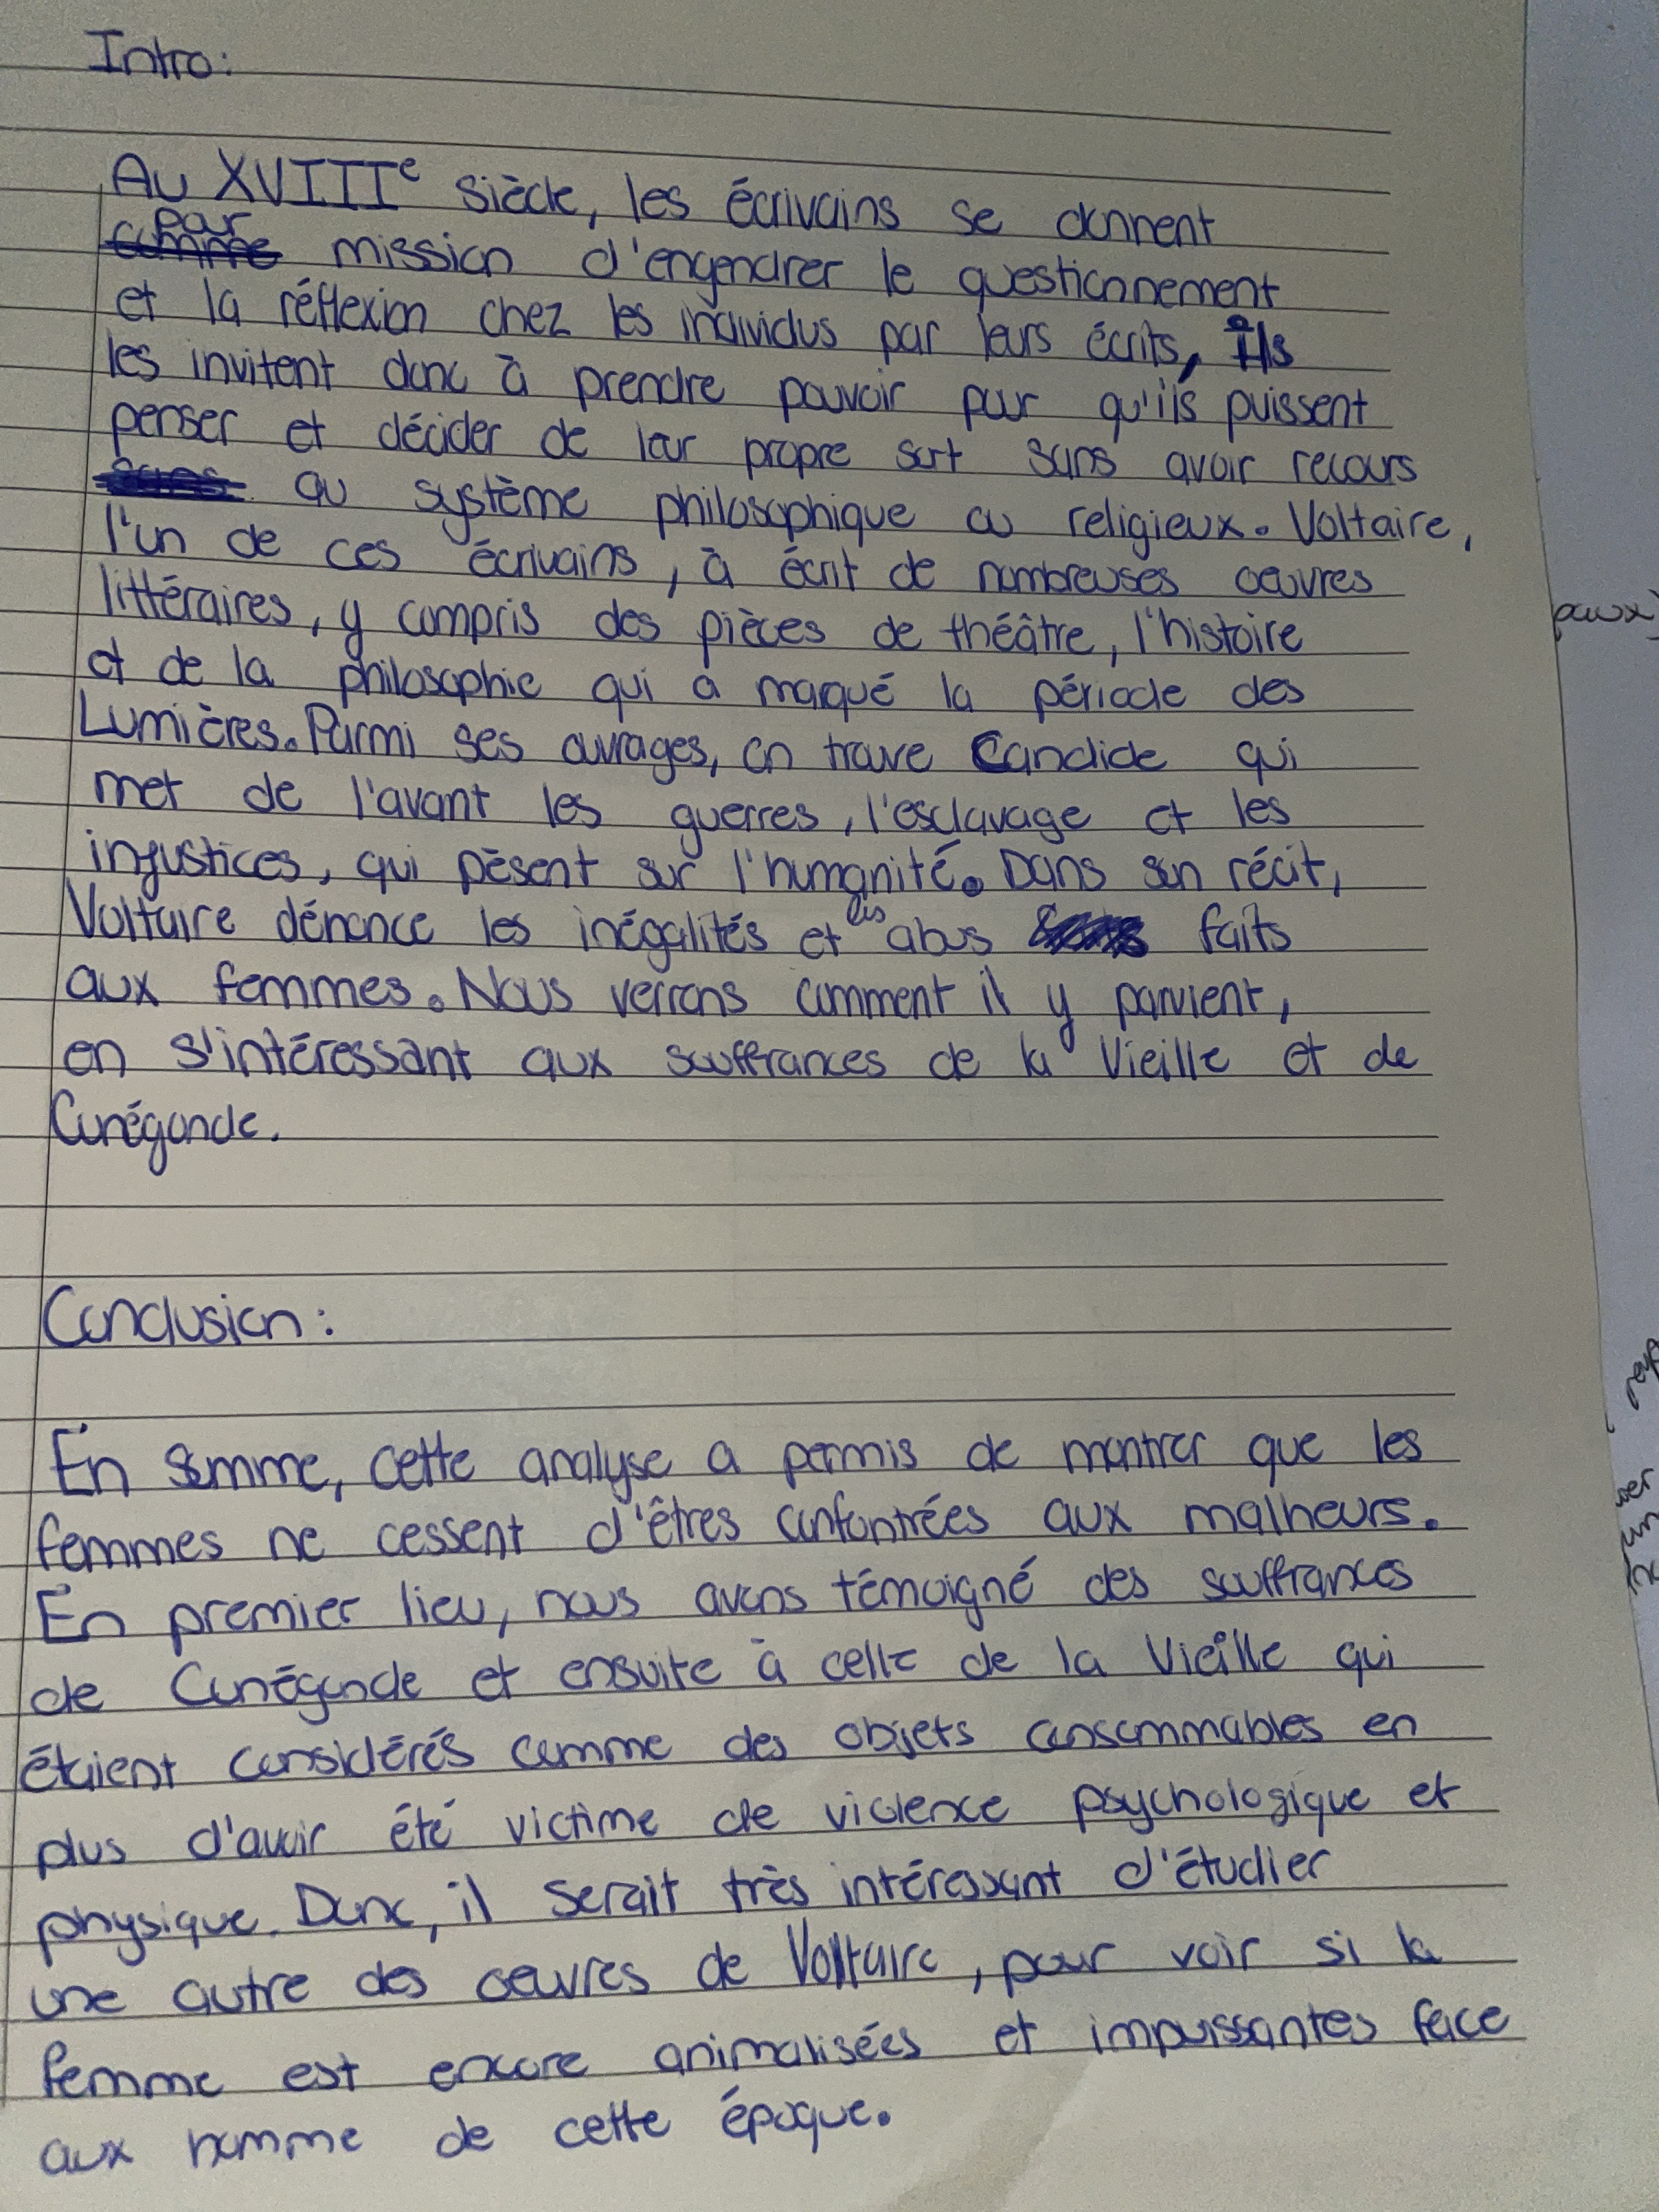 Intro:
Au XVIIIe siècle, les écrivains se donnent
par mission d'engendrer le questionnement
et la réflexion chez les individus par leurs écrits, ils
les invitent donc à prendre pouvoir pour qu'ils puissent
penser et décider de leur propre sort sans avoir recours
au système philosophique ou religieux. Voltaire,
l'un de ces écrivains, à écrit de nombreuses oeuvres
littéraires, y compris des pièces de théâtre, l'histoire
et de la philosophie qui a marqué la période des
Lumières. Parmi ses ouvrages, on trouve Candide qui
met de l'avant les guerres, l'esclavage et les
injustices, qui pèsent sur l'humanité. Dans son récit,
Voltaire dénonce les inégalités et les abus faits
aux femmes. Nous verrons comment il y parvient,
en s'intéressant aux souffrances de la Vieille et de
Cunégonde.
Conclusion:
En somme, cette analyse a permis de montrer que les
femmes ne cessent d'êtres confontrées aux malheurs.
En premier lieu, nous avons témoigné des souffrances
de Cunégonde et ensuite à celle de la Vieille qui
étaient considérés comme des objets consommables en
plus d'avoir été victime de violence psychologique et
physique. Donc, il serait très intéressant d'étudier
une autre des oeuvres de Voltaire, pour voir si la
femme est encore animalisées et impuissantes face
aux homme de cette époque.